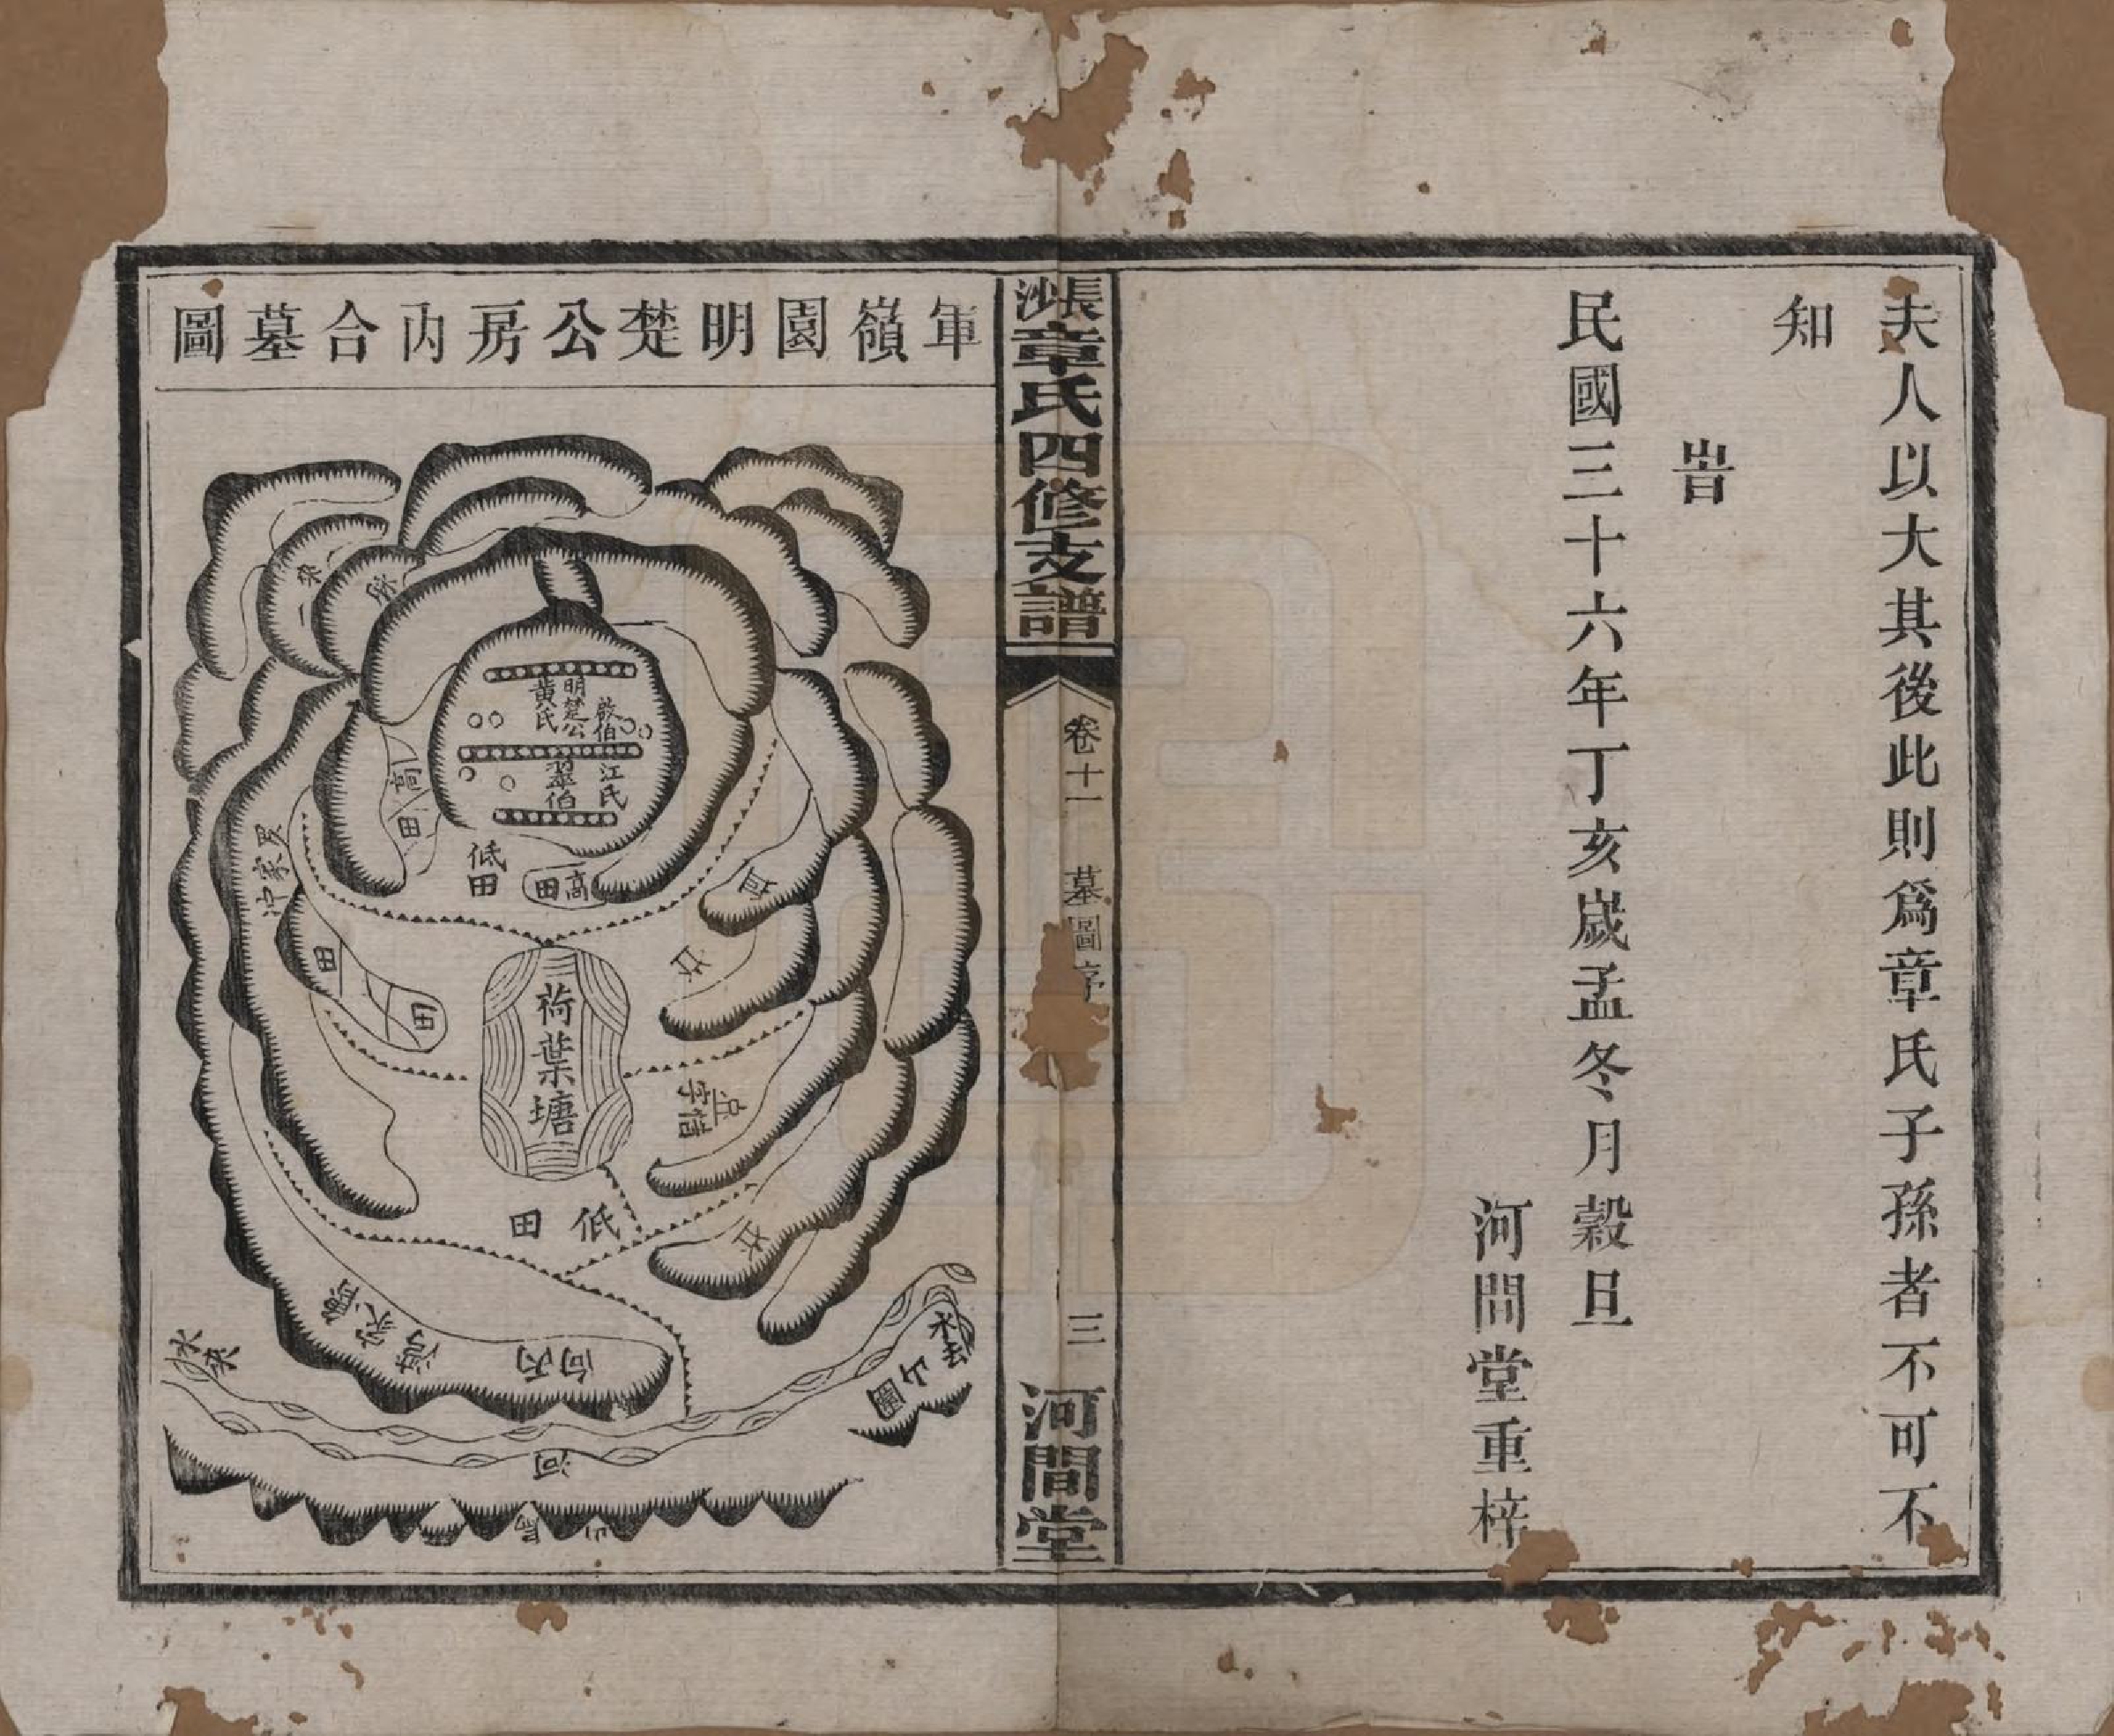 夫人以大其後此則爲章氏子孫者不可不
知
旹
民國三十六年丁亥歲孟冬月穀旦
河間堂重梓
漲章氏四修支譜
卷十一
墓圖序
三
河間堂
軍嶺園明楚公房內合墓圖
啟伯
明楚公
黃氏
江氏
翠伯
高田
低田
高田
田
田
荷葉塘
低田
向丙
河
水來